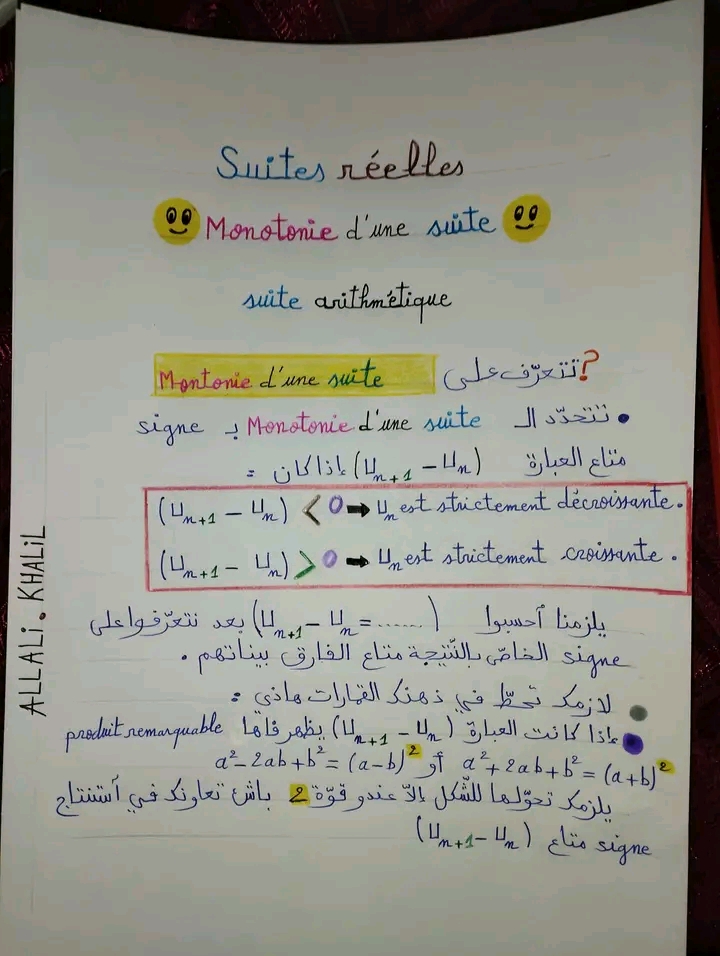 Suites réelles
Monotonie d'une suite
suite arithmétique
? نتعرّف على Montonie d'une suite
• نتحدّد الـ Monotonie d'une suite بـ signe
متاع العبارة (Un+1 - Un) إذا كان =
(Un+1 - Un) < 0 ➡ Un est strictement décroissante.
(Un+1 - Un) > 0 ➡ Un est strictement croissante.
يلزمنا أحسبوا (Un+1 - Un = ......) بعد نتعرّفوا على
signe الخاصّ بالنّتيجة متاع الفارق بيناتهم .
● لازمك تحطّ في ذهنك القمارات هاذي :
● إذا كانت العبارة (Un+1 - Un) يظهر فاها produit remarquable
a²+2ab+b²=(a+b)² أو a²-2ab+b²=(a-b)²
يلزمك تحوّلها للشّكل إلّا عندو قوّة 2 باش تعاونك في آستنتاج
signe متاع (Un+1 - Un)
ALLALi.KHALiL